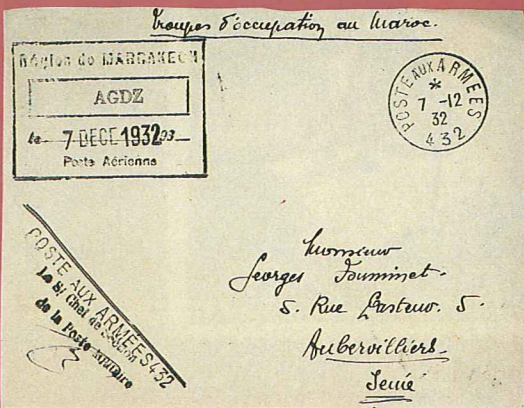 Troupes d'occupation au Maroc.
Région de MARRAKECH
AGDZ
le 7 DECE 1932 93
Poste Aérienne
POSTE AUX ARMEES
*
7 -12
32
432
POSTE AUX ARMEES 432
Le S/ Chef de Section
de la Poste militaire
Monsieur
Georges
5. Rue Pasteur. 5.
Aubervilliers.
Seine